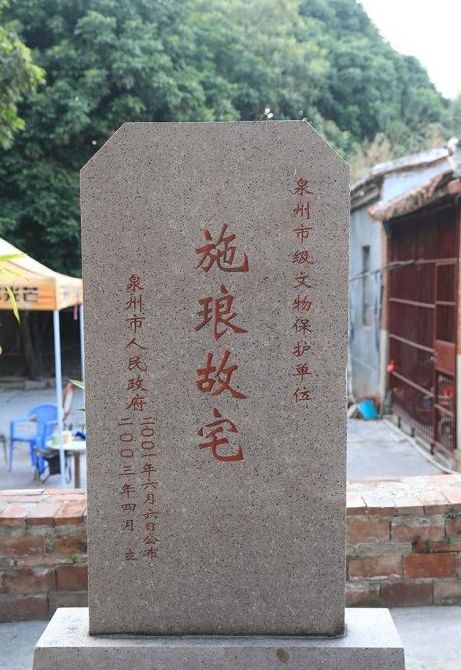 泉州市级文物保护单位
施琅故宅
泉州市人民政府
二〇〇一年六月六日公布
二〇〇三年四月 立